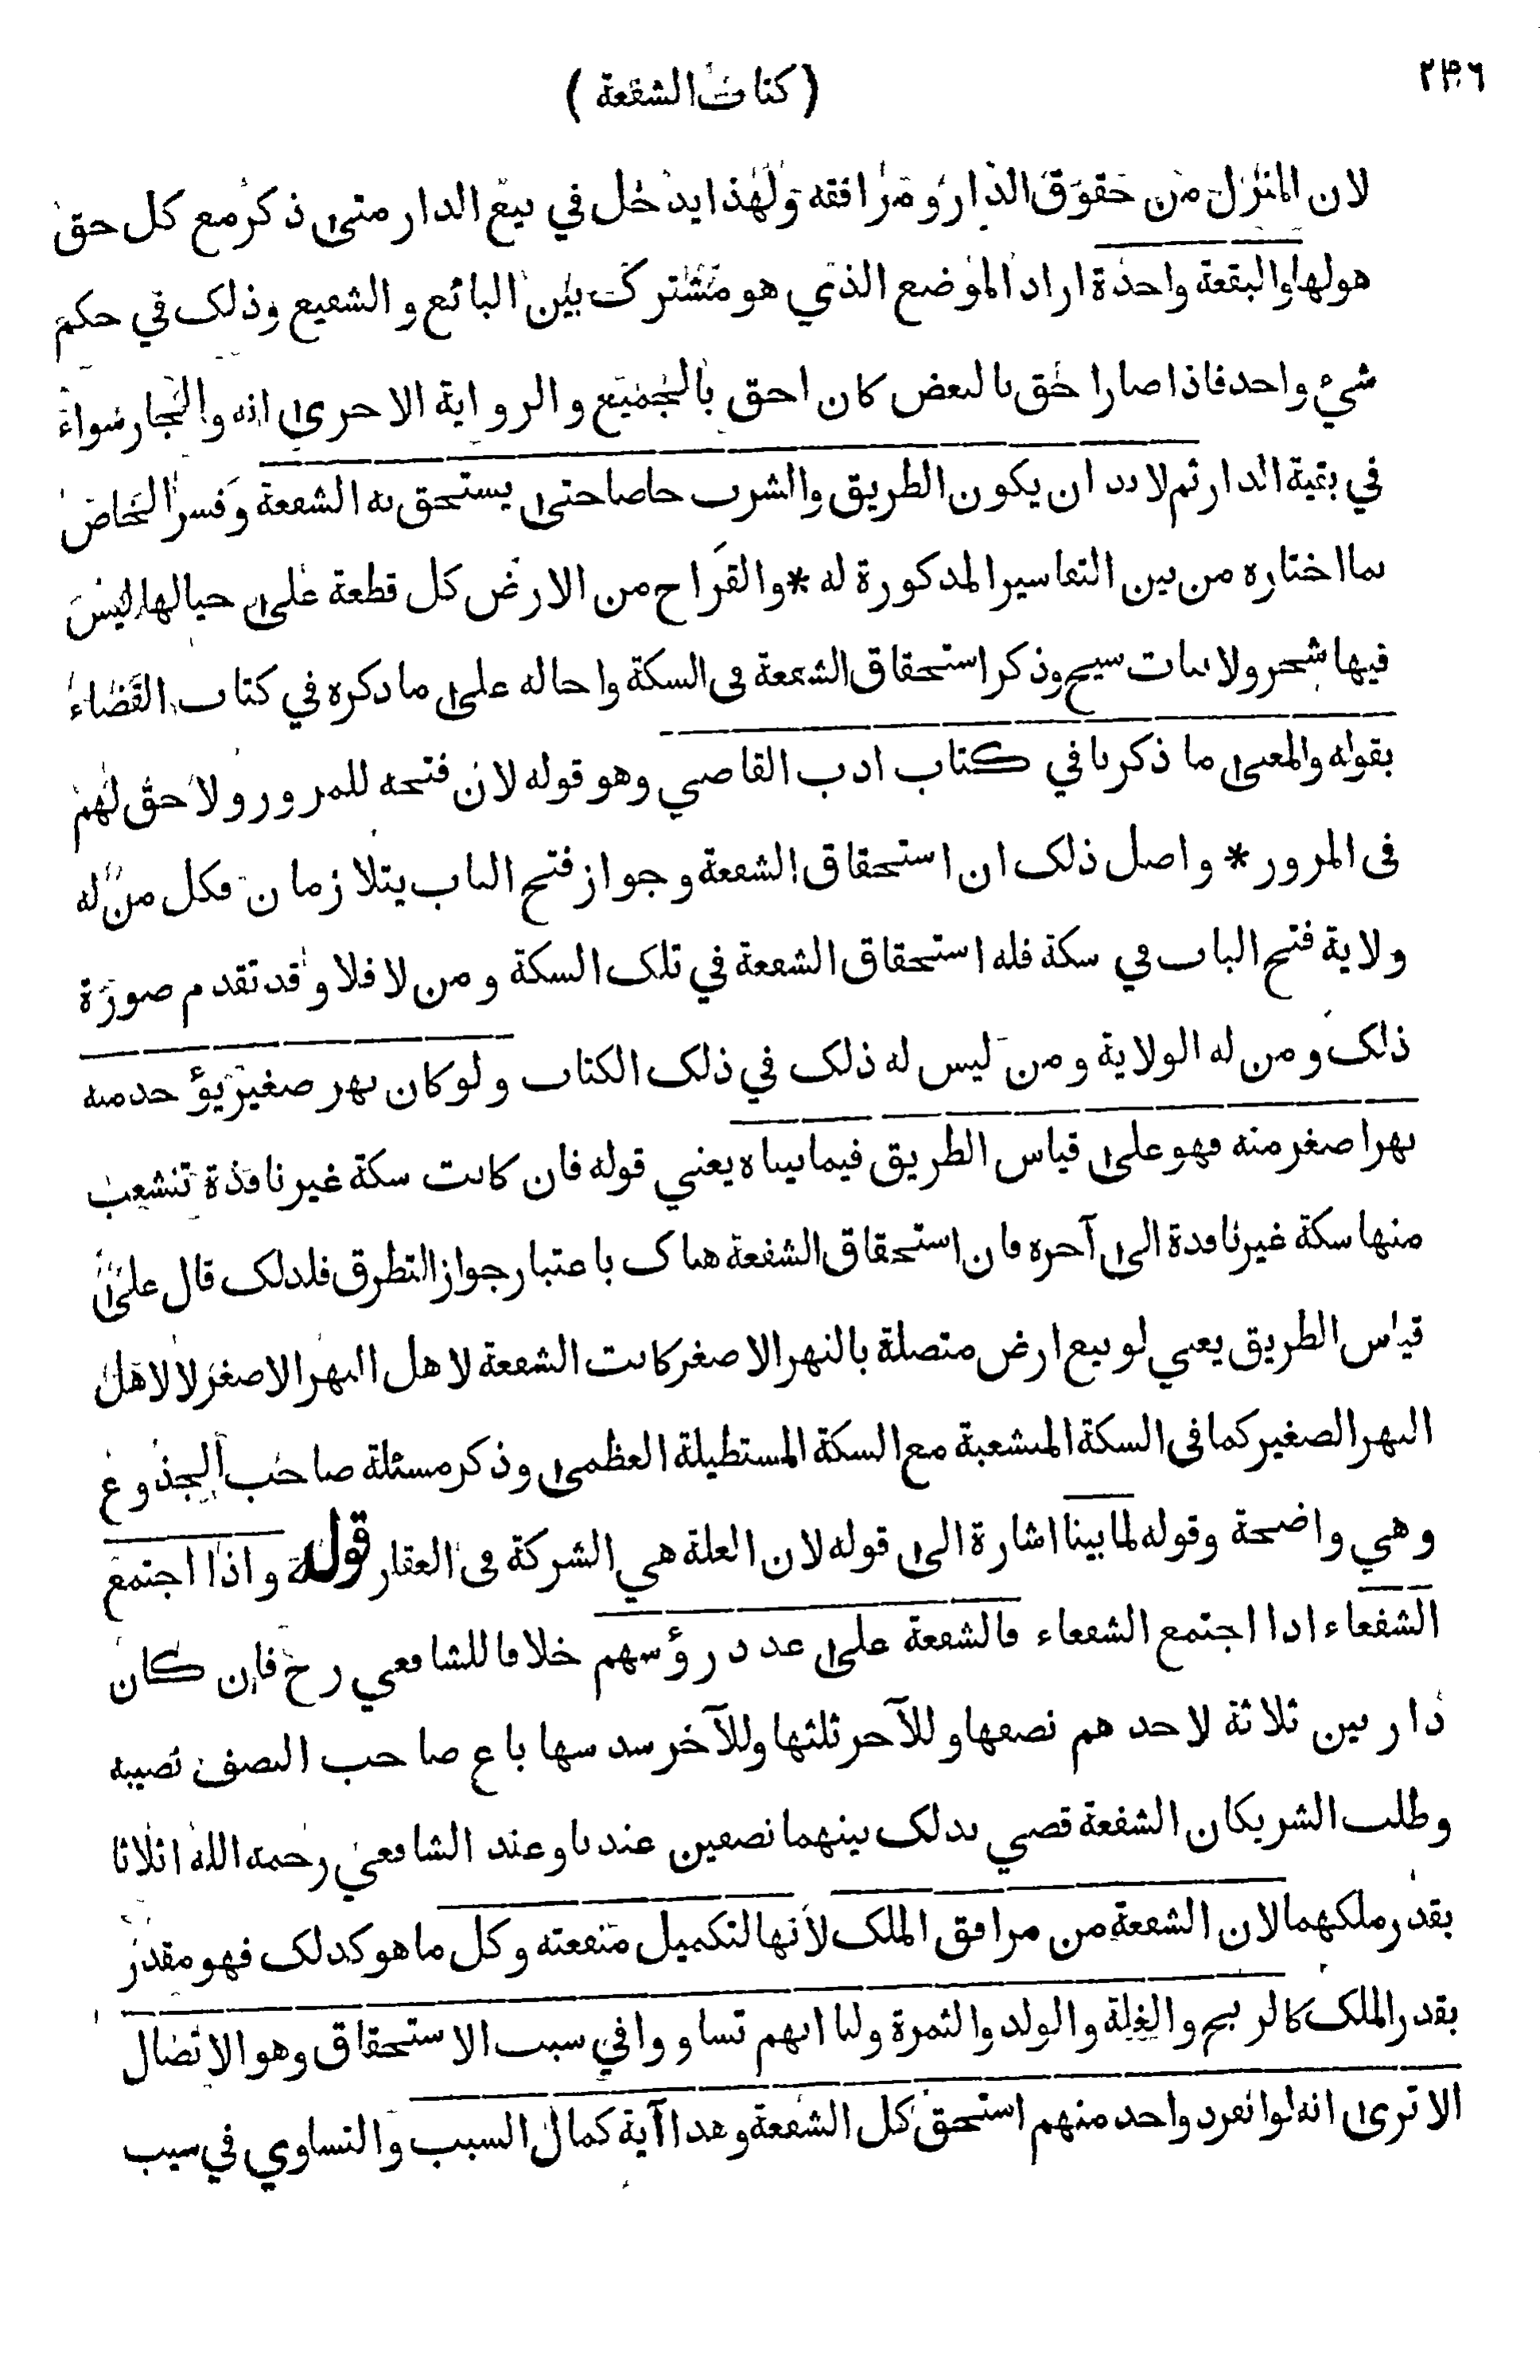 ٢٣٦
( كتاب الشفعة )
لان المنزل من حقوق الدار ومرافقه ولهذا يدخل في بيع الدار متى ذكر مع كل حق
هو لها والبقعة واحدة اراد الموضع الذي هو مشترك بين البائع والشفيع وذلك في حكم
شيء واحد فاذا صار احق بالبعض كان احق بالجميع والرواية الاخرى انه والجار سواء
في بقية الدار ثم لا بد ان يكون الطريق والشرب خاصا حتى يستحق به الشفعة وفسر الخاص
بما اختاره من بين التفاسير المذكورة له * والقراح من الارض كل قطعة على حيالها ليس
فيها شجر ولا نبات سيح وذكر استحقاق الشفعة في السكة واحاله على ما ذكره في كتاب القضاء
بقوله والمعنى ما ذكرنا في كتاب ادب القاضي وهو قوله لان فتحه للمرور ولا حق لهم
في المرور * واصل ذلك ان استحقاق الشفعة وجواز فتح الباب يتلازمان فكل من له
ولاية فتح الباب في سكة فله استحقاق الشفعة في تلك السكة ومن لا فلا وقد تقدم صورة
ذلك ومن له الولاية ومن ليس له ذلك في ذلك الكتاب ولو كان نهر صغير يؤخذ منه
نهر اصغر منه فهو على قياس الطريق فيما بيناه يعني قوله فان كانت سكة غير نافذة تنشعب
منها سكة غير نافذة الى آخره فان استحقاق الشفعة هناك باعتبار جواز التطرق فلذلك قال على
قياس الطريق يعني لو بيع ارض متصلة بالنهر الاصغر كانت الشفعة لاهل النهر الاصغر لا لاهل
النهر الصغير كما في السكة المنشعبة مع السكة المستطيلة العظمى وذكر مسئلة صاحب الجذوع
وهي واضحة وقوله لما بينا اشارة الى قوله لان العلة هي الشركة في العقار قوله واذا اجتمع
الشفعاء اذا اجتمع الشفعاء فالشفعة على عدد رؤسهم خلافا للشافعي رح فان كان
دار بين ثلاثة لاحدهم نصفها وللآخر ثلثها وللآخر سدسها باع صاحب النصف نصيبه
وطلب الشريكان الشفعة قضي بذلك بينهما نصفين عندنا وعند الشافعي رحمه الله اثلاثا
بقدر ملكهما لان الشفعة من مرافق الملك لانها لتكميل منفعته وكل ما هو كذلك فهو مقدر
بقدر الملك كالربح والغلة والولد والثمرة ولنا انهم تساووا في سبب الاستحقاق وهو الاتصال
الا ترى انه لو انفرد واحد منهم استحق كل الشفعة وهذا آية كمال السبب والتساوي في سبب